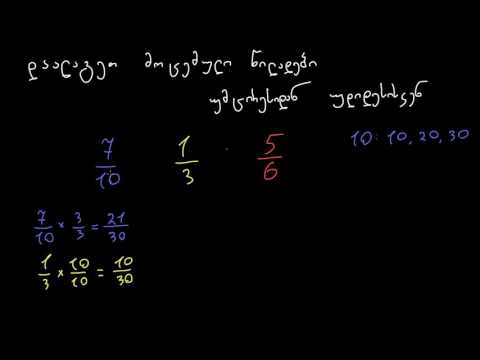 დაალაგეთ მოცემული წილადები
უმცირესიდან უდიდესისკენ
7/10 1/3 5/6 10: 10, 20, 30
7/10 × 3/3 = 21/30
1/3 × 10/10 = 10/30